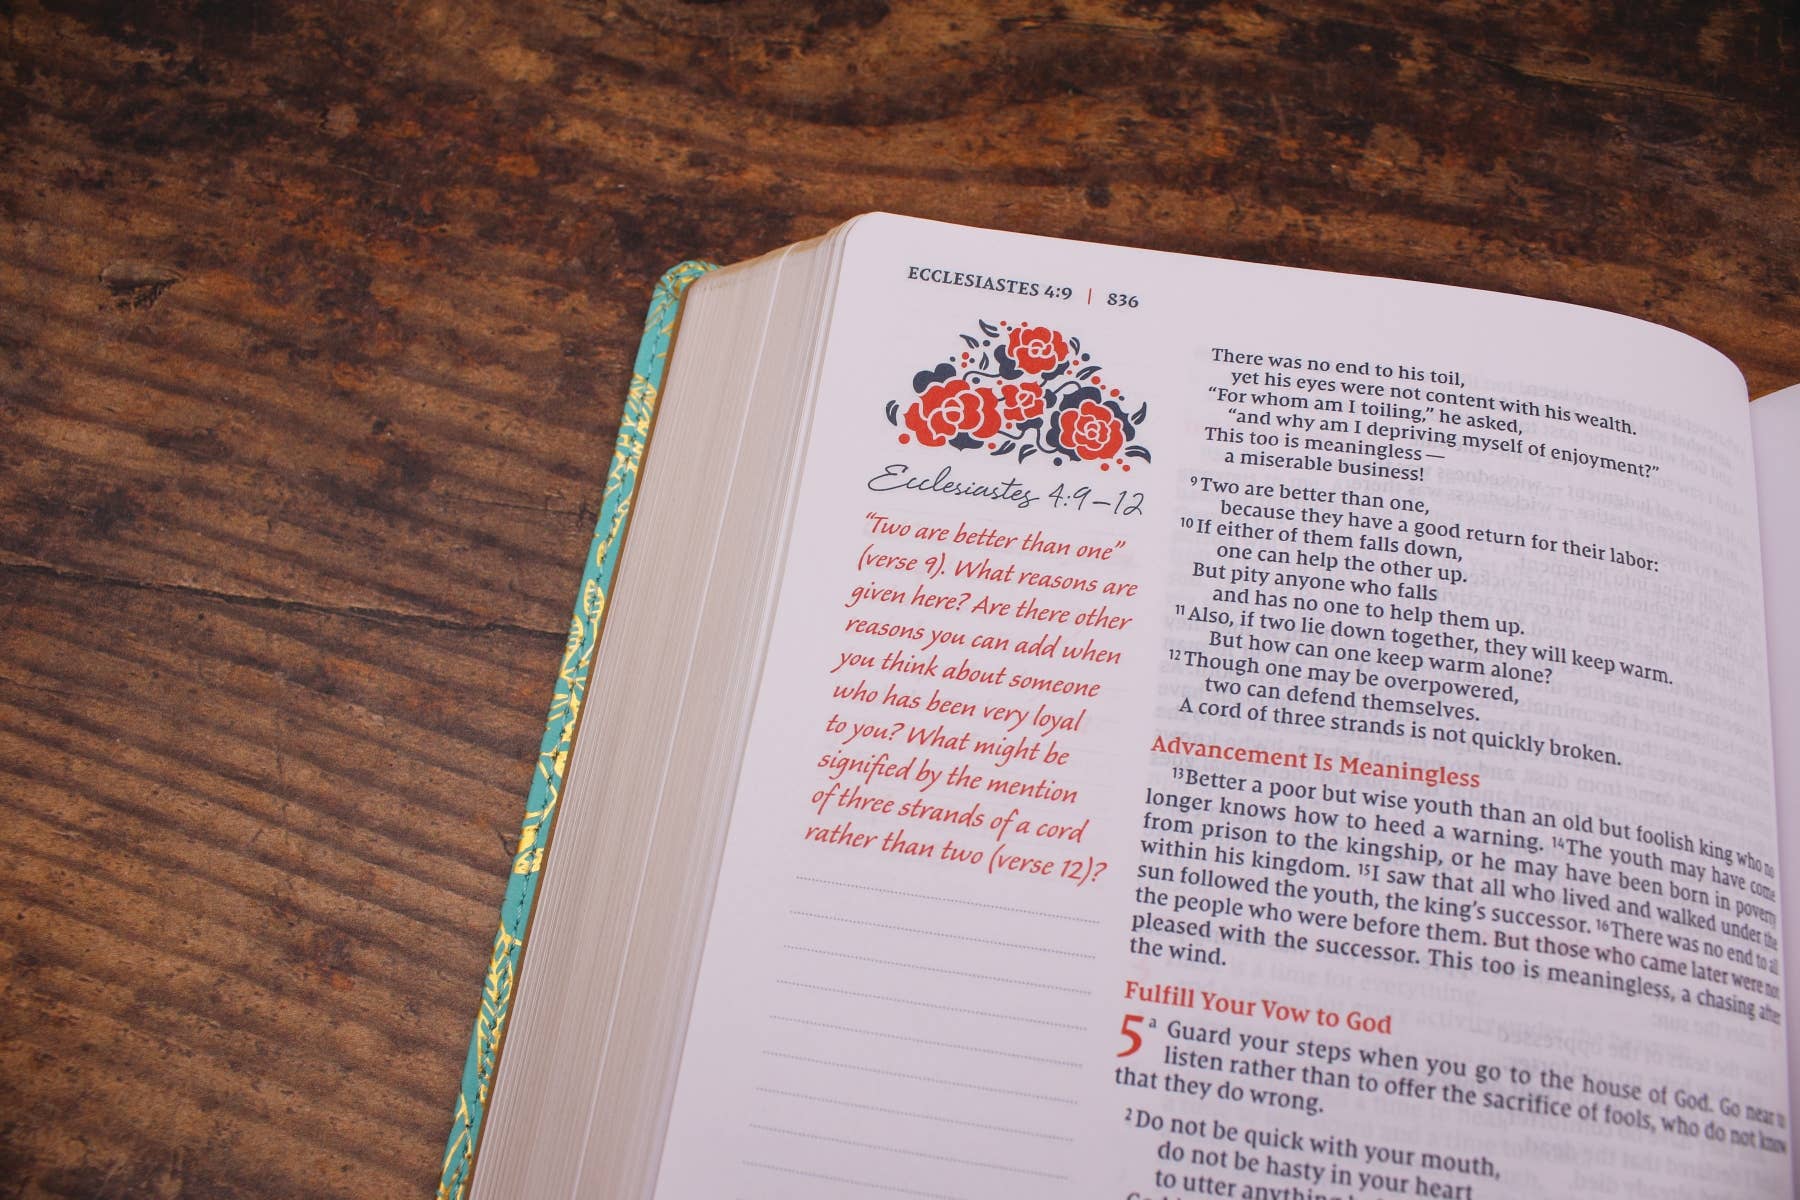 ECCLESIASTES 4:9 | 836
Ecclesiastes 4:9–12
“Two are better than one”
(verse 9). What reasons are
given here? Are there other
reasons you can add when
you think about someone
who has been very loyal
to you? What might be
signified by the mention
of three strands of a cord
rather than two (verse 12)?
There was no end to his toil,
yet his eyes were not content with his wealth.
“For whom am I toiling,” he asked,
“and why am I depriving myself of enjoyment?”
This too is meaningless—
a miserable business!
9 Two are better than one,
because they have a good return for their labor:
10 If either of them falls down,
one can help the other up.
But pity anyone who falls
and has no one to help them up.
11 Also, if two lie down together, they will keep warm.
But how can one keep warm alone?
12 Though one may be overpowered,
two can defend themselves.
A cord of three strands is not quickly broken.
Advancement Is Meaningless
13 Better a poor but wise youth than an old but foolish king who no
longer knows how to heed a warning. 14 The youth may have come
from prison to the kingship, or he may have been born in poverty
within his kingdom. 15 I saw that all who lived and walked under the
sun followed the youth, the king’s successor. 16 There was no end to all
the people who were before them. But those who came later were not
pleased with the successor. This too is meaningless, a chasing after
the wind.
Fulfill Your Vow to God
5 a Guard your steps when you go to the house of God. Go near to
listen rather than to offer the sacrifice of fools, who do not know
that they do wrong.
2 Do not be quick with your mouth,
do not be hasty in your heart
to utter anything